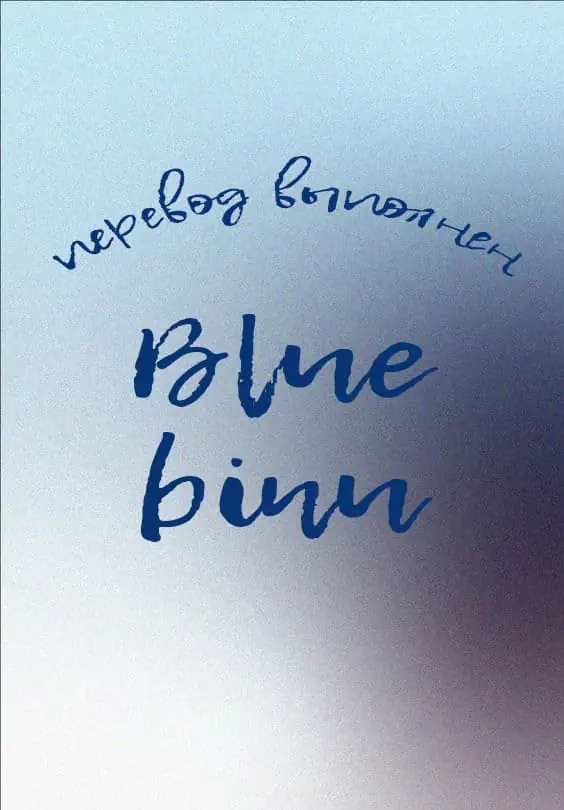 перевод выполнен
Blue
binn